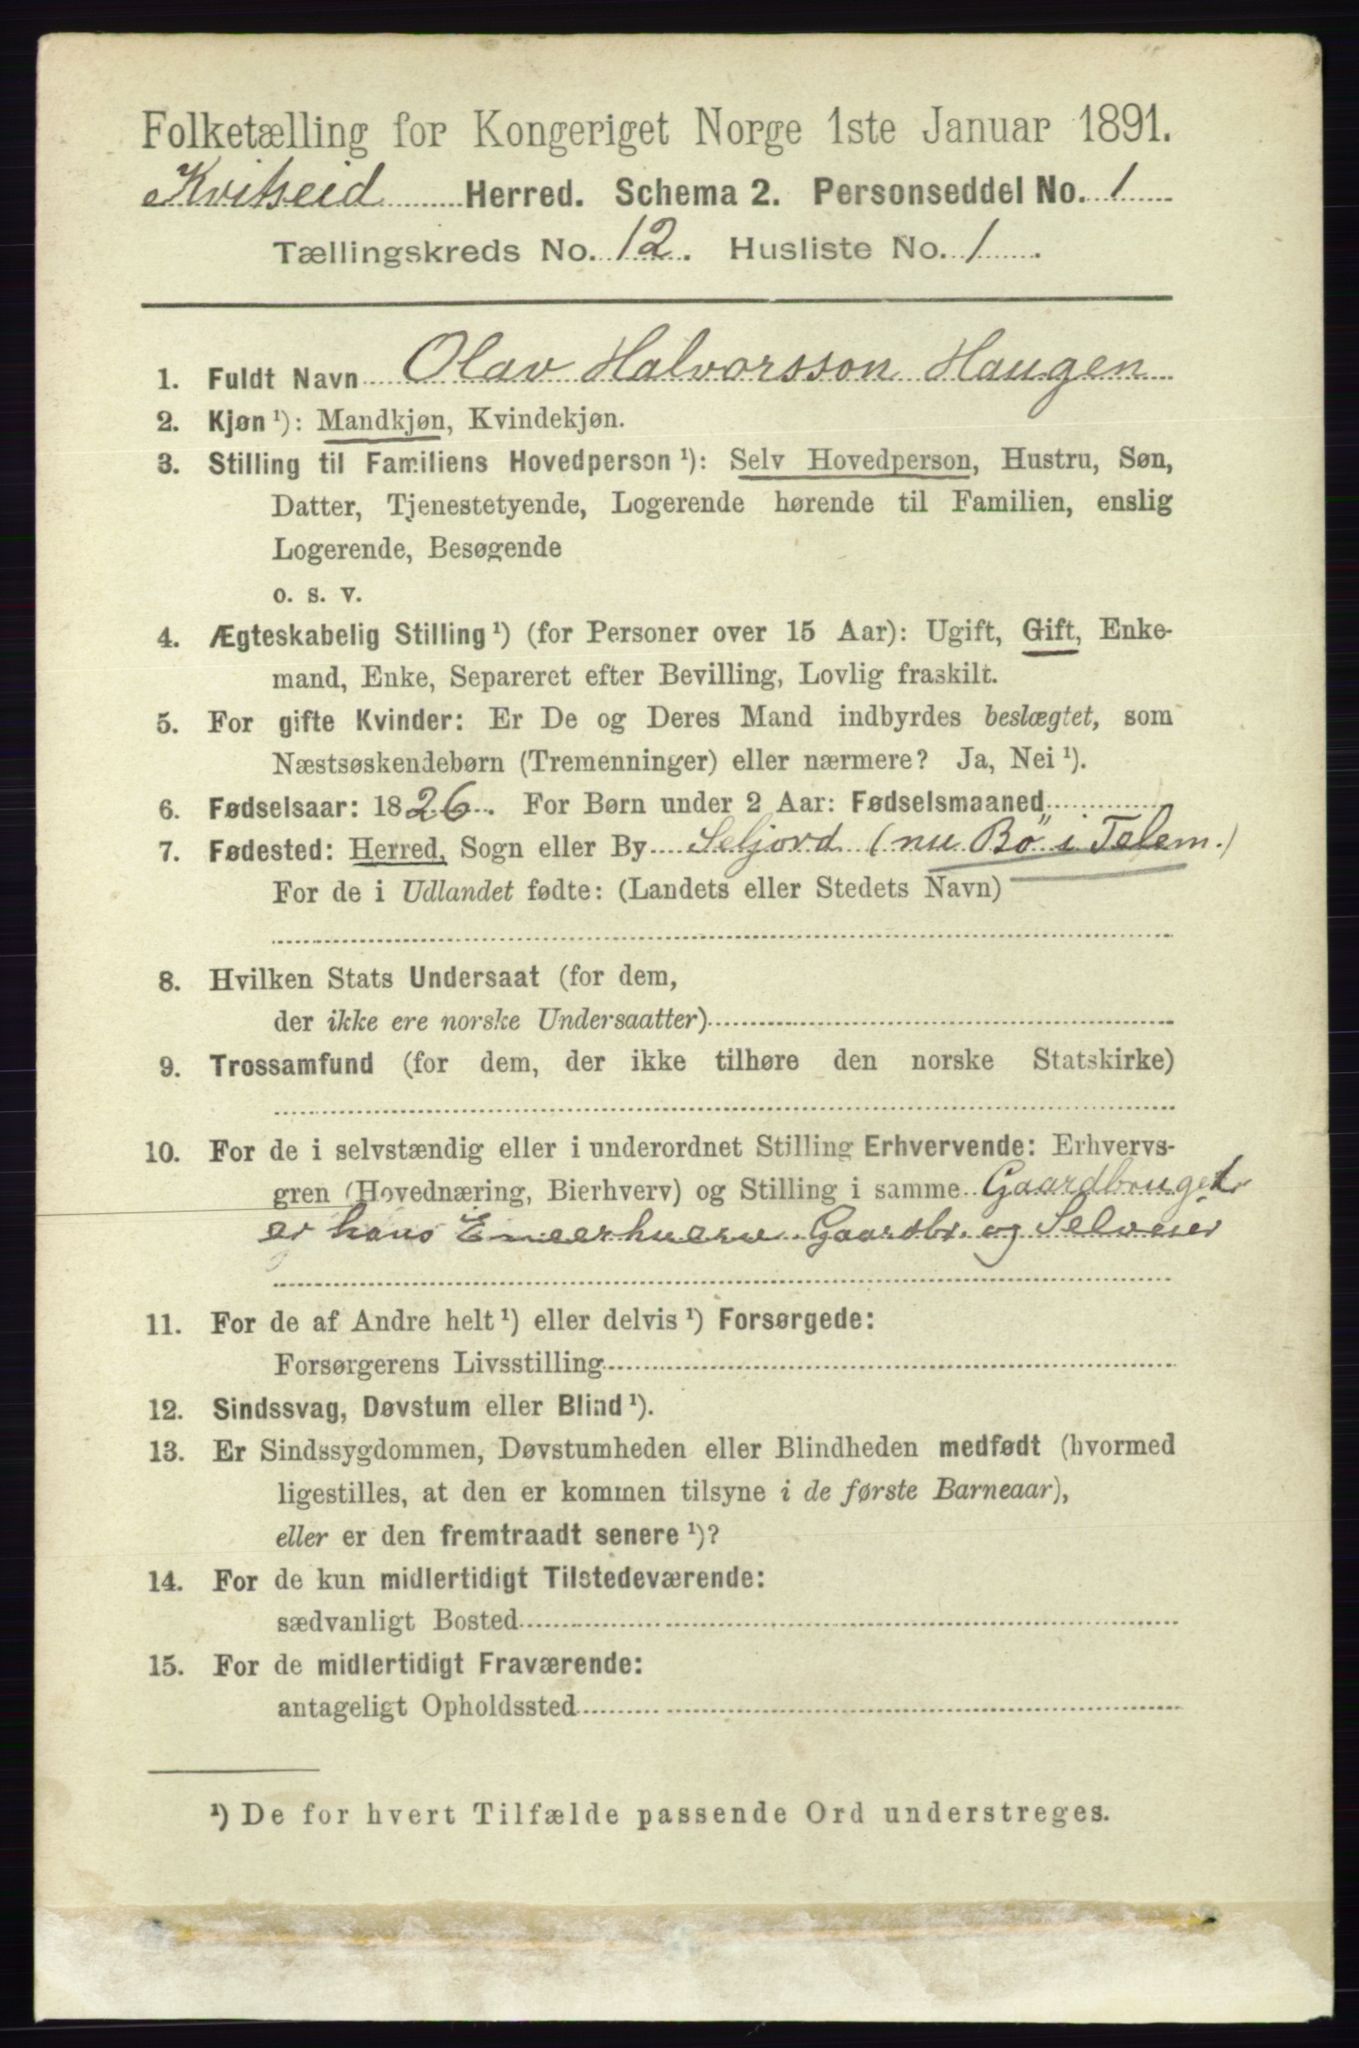 Folketælling for Kongeriget Norge 1ste Januar 1891.
Kviteseid Herred. Schema 2. Personseddel No. 1
Tællingskreds No. 12. Husliste No. 1.
1. Fuldt Navn Olav Halvorsson Haugen
2. Kjøn ¹): Mandkjøn, Kvindekjøn.
3. Stilling til Familiens Hovedperson ¹): Selv Hovedperson, Hustru, Søn,
Datter, Tjenestetyende, Logerende hørende til Familien, enslig
Logerende, Besøgende
o. s. v.
4. Ægteskabelig Stilling ¹) (for Personer over 15 Aar): Ugift, Gift, Enke-
mand, Enke, Separeret efter Bevilling, Lovlig fraskilt.
5. For gifte Kvinder: Er De og Deres Mand indbyrdes beslægtet, som
Næstsøskendebørn (Tremenninger) eller nærmere? Ja, Nei ¹).
6. Fødselsaar: 1826. For Børn under 2 Aar: Fødselsmaaned
7. Fødested: Herred, Sogn eller By Seljord (nu Bö i Telem.)
For de i Udlandet fødte: (Landets eller Stedets Navn)
8. Hvilken Stats Undersaat (for dem,
der ikke ere norske Undersaatter)
9. Trossamfund (for dem, der ikke tilhøre den norske Statskirke)
10. For de i selvstændig eller i underordnet Stilling Erhvervende: Erhvervs-
gren (Hovednæring, Bierhverv) og Stilling i samme Gaardbruget
er hans Gaardbr. og Selveier
11. For de af Andre helt ¹) eller delvis ¹) Forsørgede:
Forsørgerens Livsstilling
12. Sindssvag, Døvstum eller Blind ¹).
13. Er Sindssygdommen, Døvstumheden eller Blindheden medfødt (hvormed
ligestilles, at den er kommen tilsyne i de første Barneaar),
eller er den fremtraadt senere ¹)?
14. For de kun midlertidigt Tilstedeværende:
sædvanligt Bosted
15. For de midlertidigt Fraværende:
antageligt Opholdssted
¹) De for hvert Tilfælde passende Ord understreges.